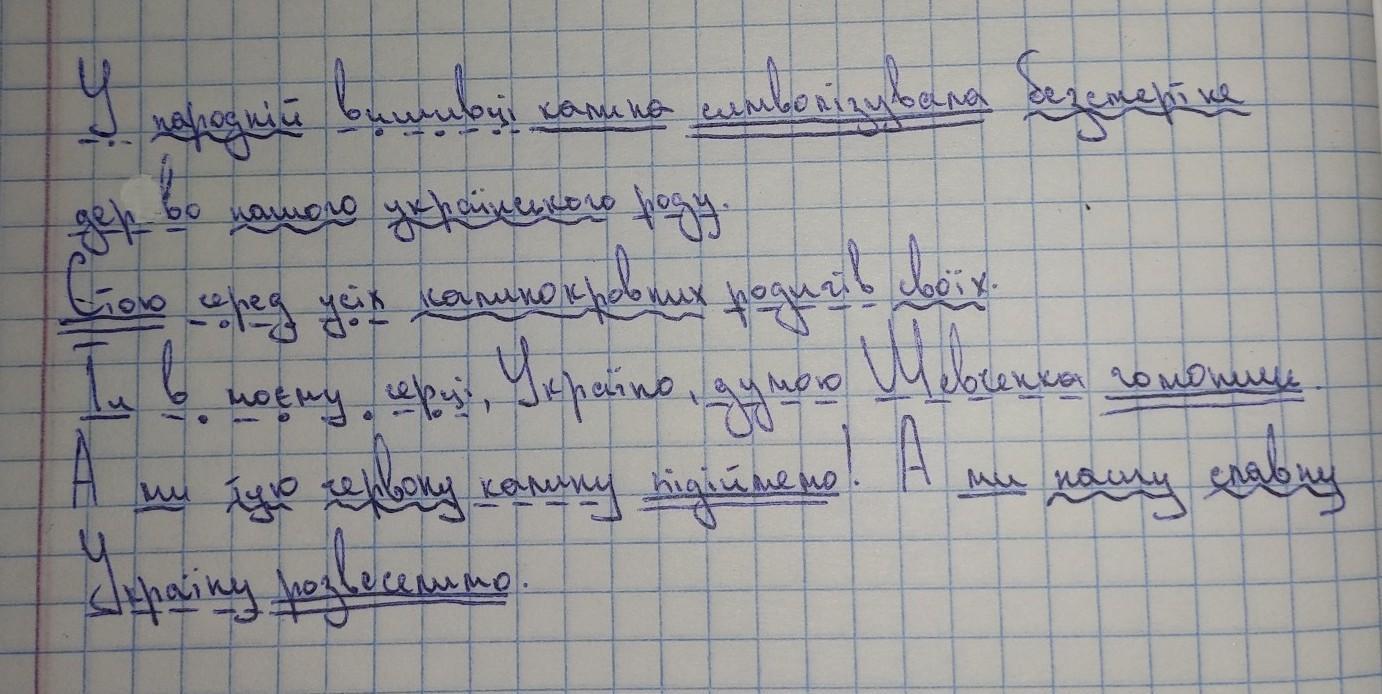 У народній вишивці калина символізувала безсмертне
дер во нашого українського роду.
Стою серед усіх калинокровних родичів своїх.
Ти в моєму серці, Україно, думою Шевченка гомониш.
А ми тую червону калину підіймемо! А ми нашу славну
Україну розвеселимо.